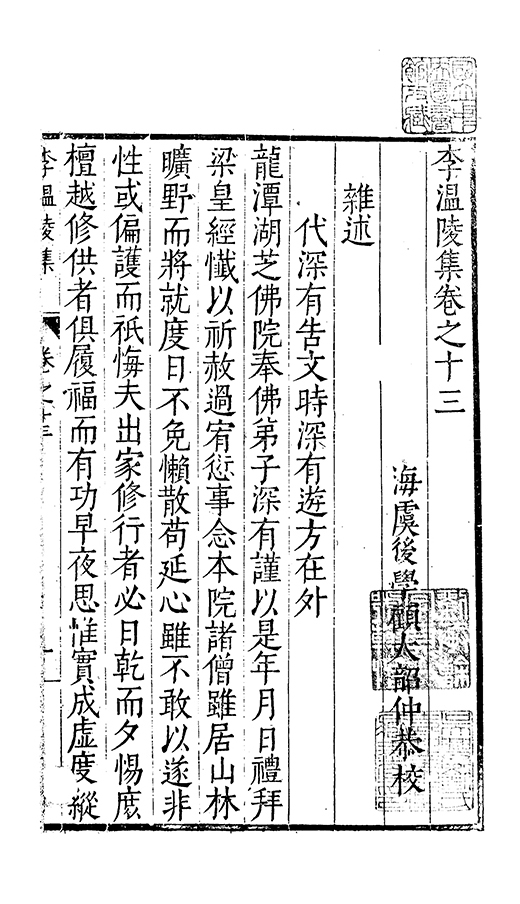 李溫陵集卷之十三
海虞後學顧大韶仲恭校
雜述
代深有告文時深有遊方在外
龍潭湖芝佛院奉佛弟子深有謹以是年月日禮拜
梁皇經懺以祈赦過宥愆事念本院諸僧雖居山林
曠野而將就度日不免懶散苟延心雖不敢以遂非
性或偏護而祇悔夫出家修行者必日乾而夕惕庶
檀越修供者俱履福而有功早夜思惟實成虛度縱
李溫陵集
卷之十三